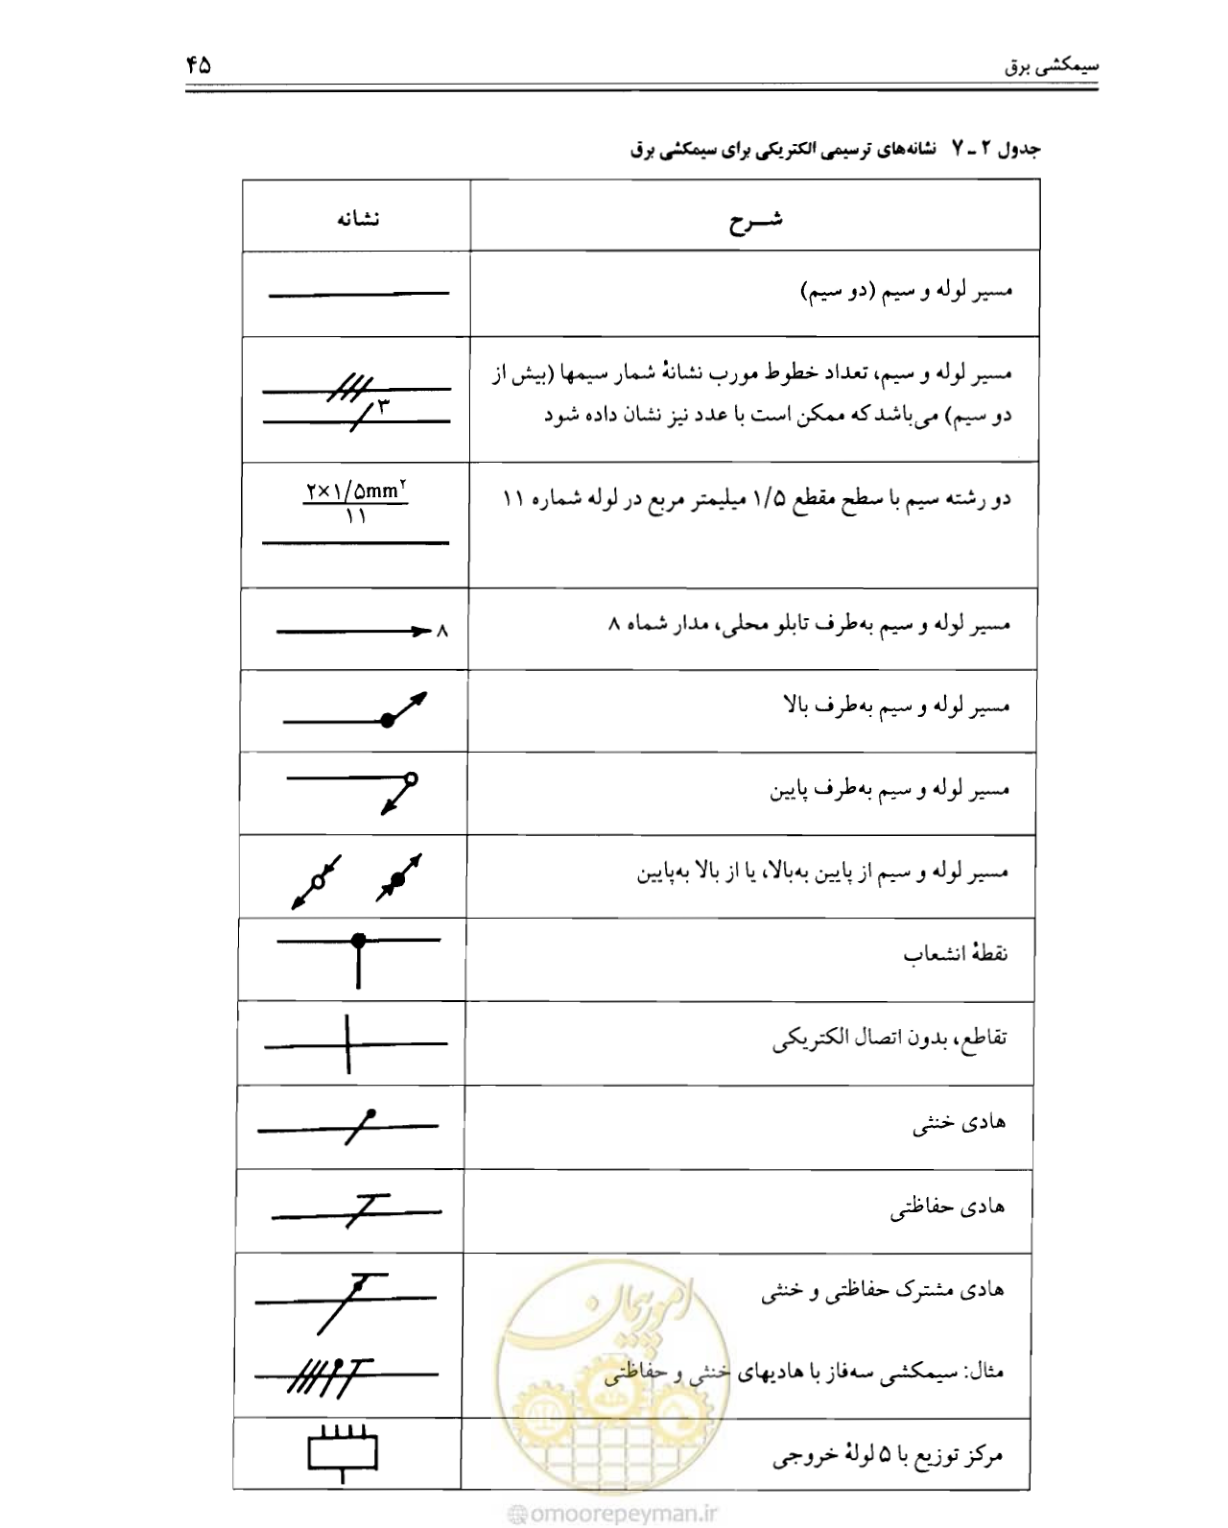 سیمکشی برق
۴۵
جدول ۲ ـ ۷ نشانه‌های ترسیمی الکتریکی برای سیمکشی برق
شــرح
نشانه
مسیر لوله و سیم (دو سیم)
مسیر لوله و سیم، تعداد خطوط مورب نشانهٔ شمار سیمها (بیش از
دو سیم) می‌باشد که ممکن است با عدد نیز نشان داده شود
۳
دو رشته سیم با سطح مقطع ۱/۵ میلیمتر مربع در لوله شماره ۱۱
۲×۱/۵mm۲
۱۱
مسیر لوله و سیم به‌طرف تابلو محلی، مدار شماه ۸
۸
مسیر لوله و سیم به‌طرف بالا
مسیر لوله و سیم به‌طرف پایین
مسیر لوله و سیم از پایین به‌بالا، یا از بالا به‌پایین
نقطهٔ انشعاب
تقاطع، بدون اتصال الکتریکی
هادی خنثی
هادی حفاظتی
هادی مشترک حفاظتی و خنثی
مثال: سیمکشی سه‌فاز با هادیهای خنثی و حفاظتی
مرکز توزیع با ۵ لولهٔ خروجی
امور پیمان
omoorepeyman.ir